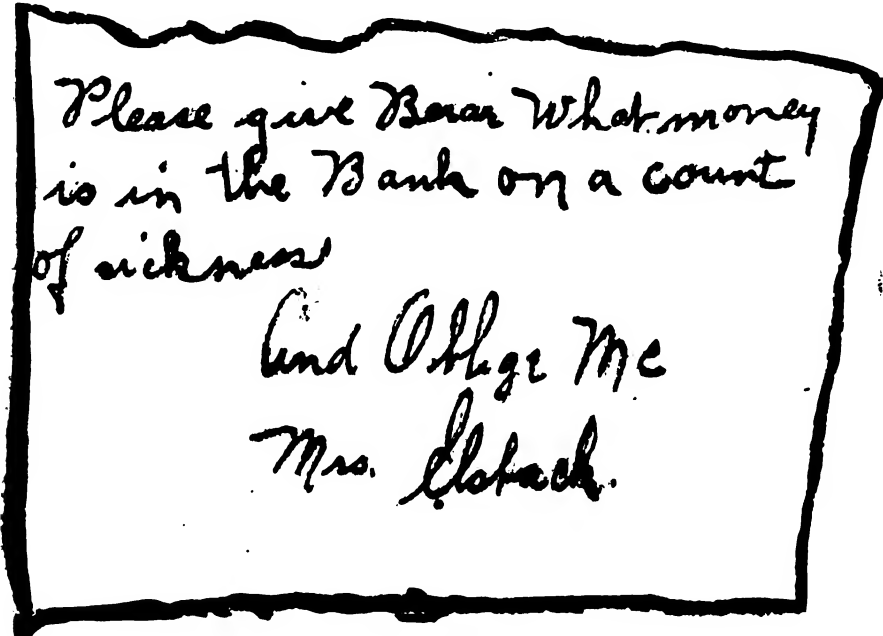 Please give Berar What money
is in the Bank on a count
of sickness
And Oblige Me
Mrs. Elsback.